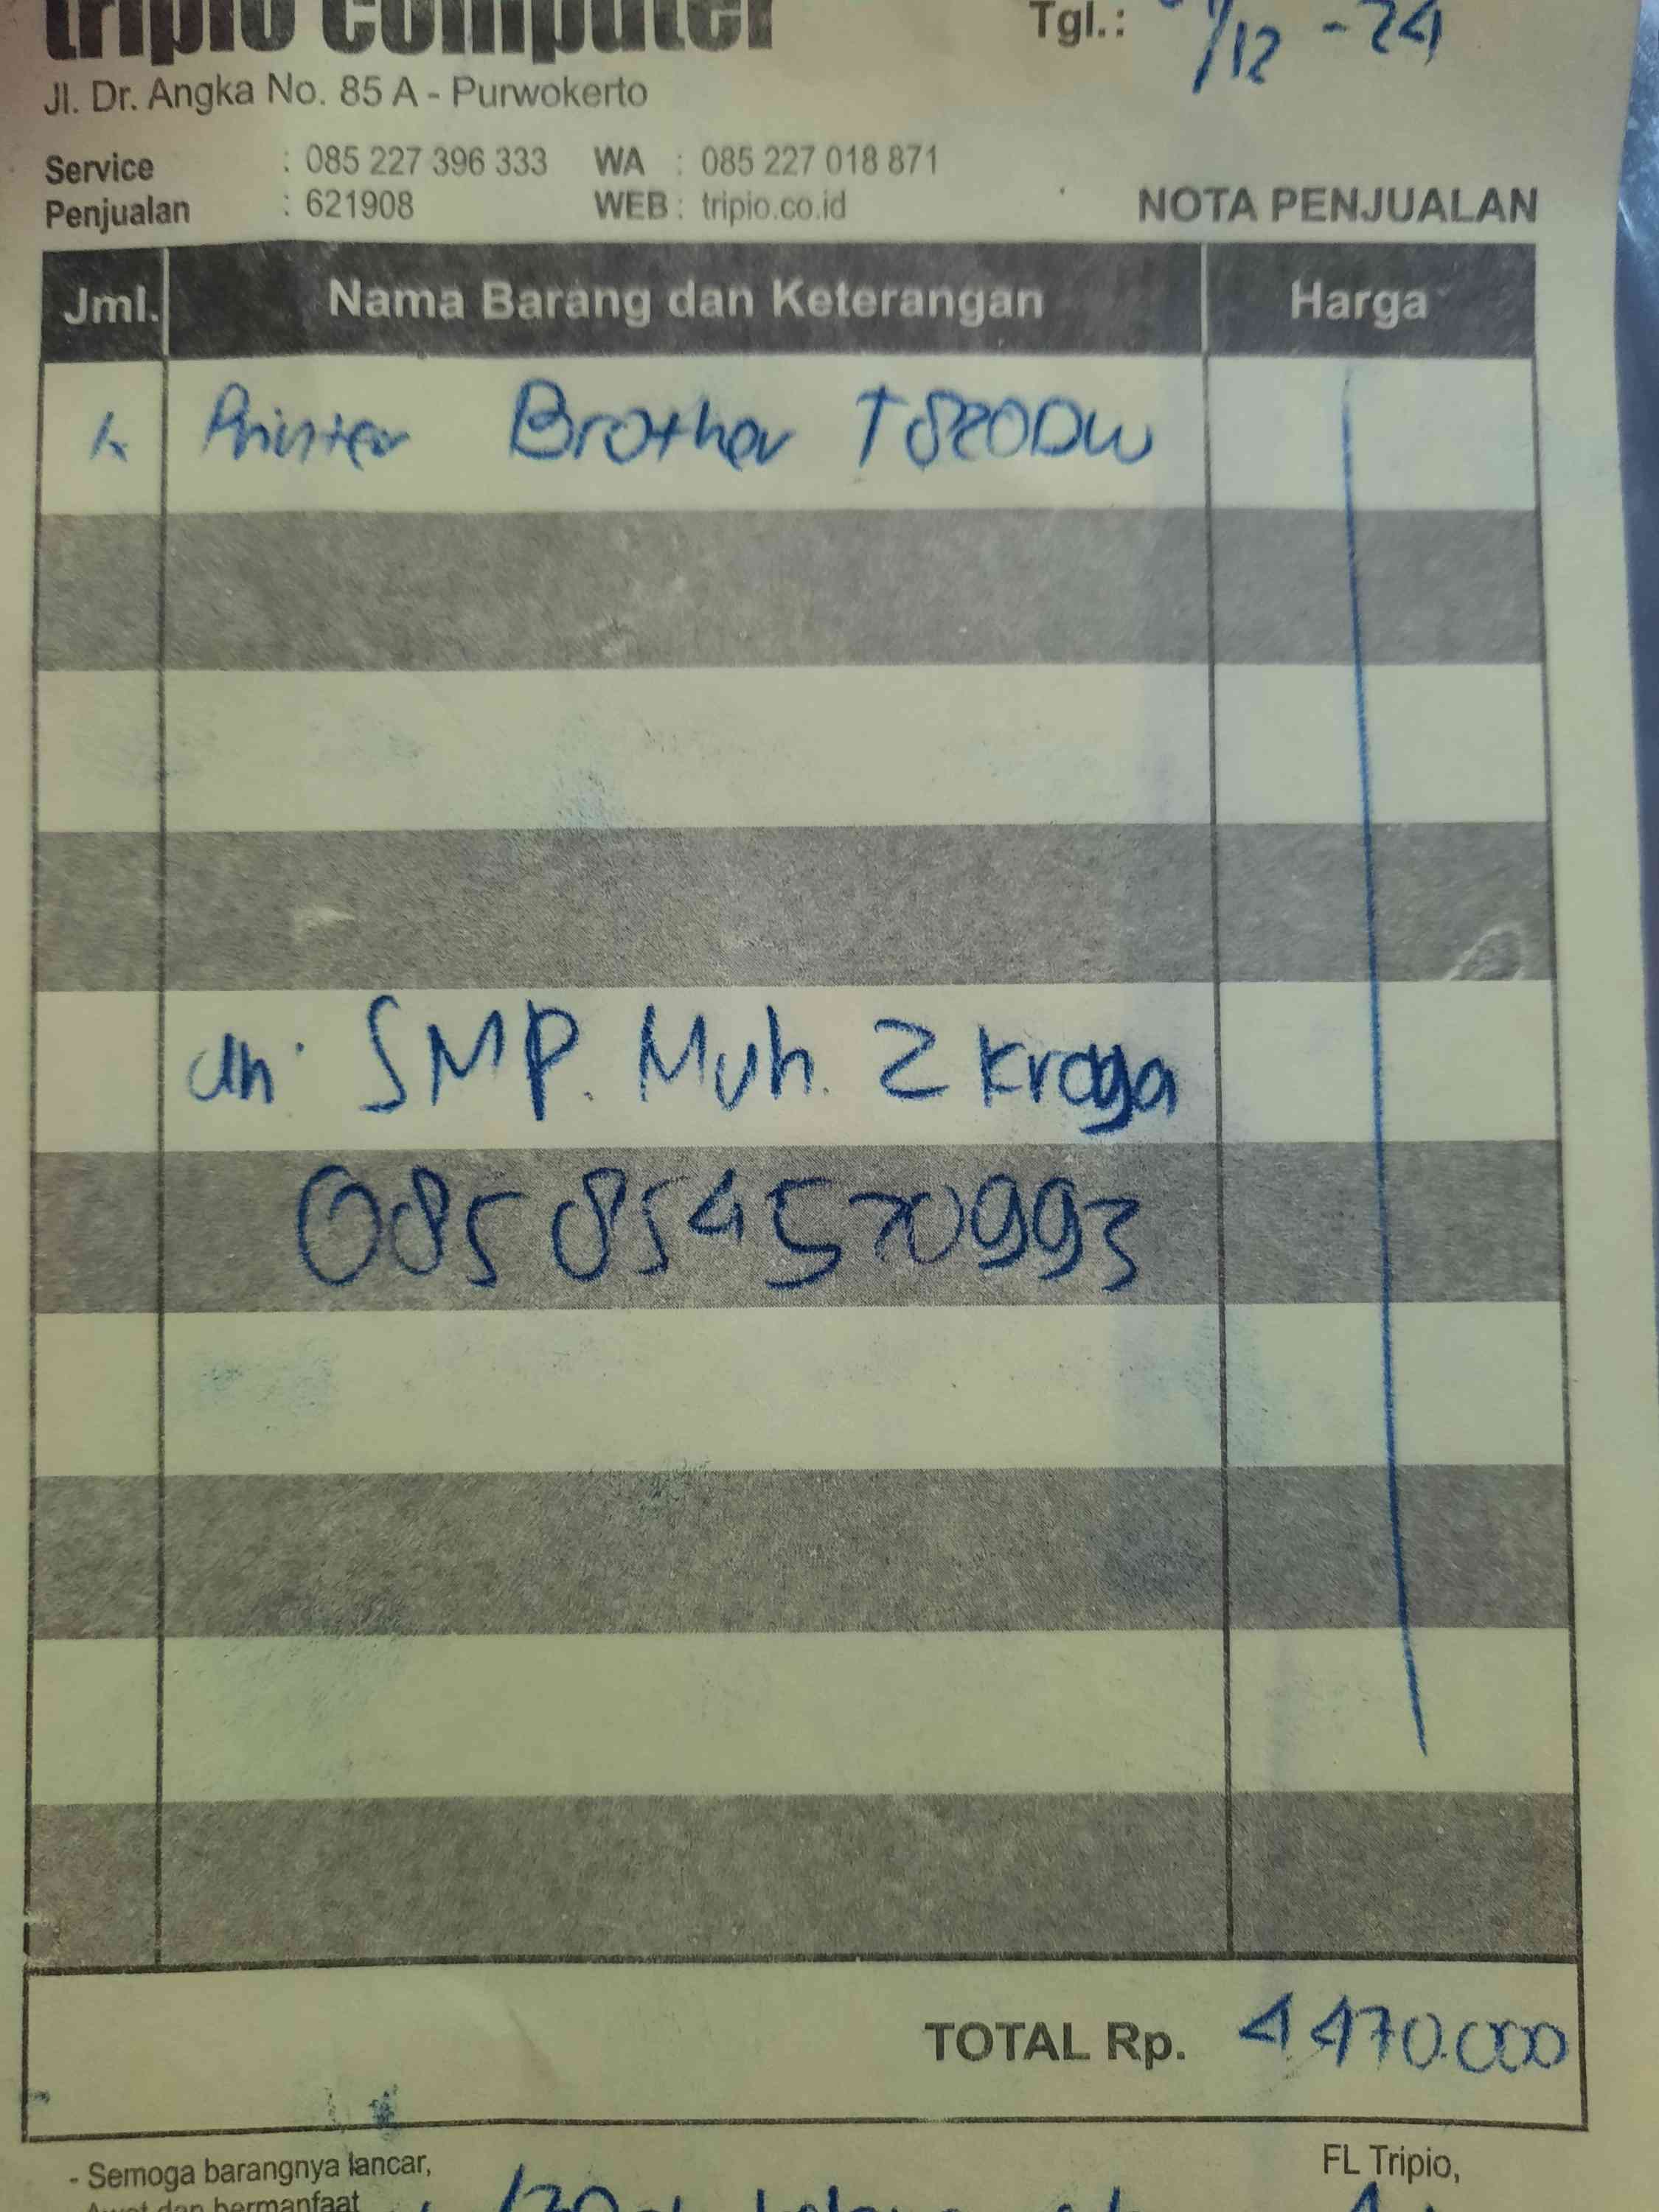 tripio computer
Tgl.: /12 - 24
Jl. Dr. Angka No. 85 A - Purwokerto
Service : 085 227 396 333 WA : 085 227 018 871
Penjualan : 621908 WEB : tripio.co.id
NOTA PENJUALAN
Jml. Nama Barang dan Keterangan Harga
1x Printer Brother T820DW
An. SMP. Muh. 2 Kroya
085 854 570993
TOTAL Rp. 4 470.000
- Semoga barangnya lancar,
FL Tripio,
Awet dan bermanfaat